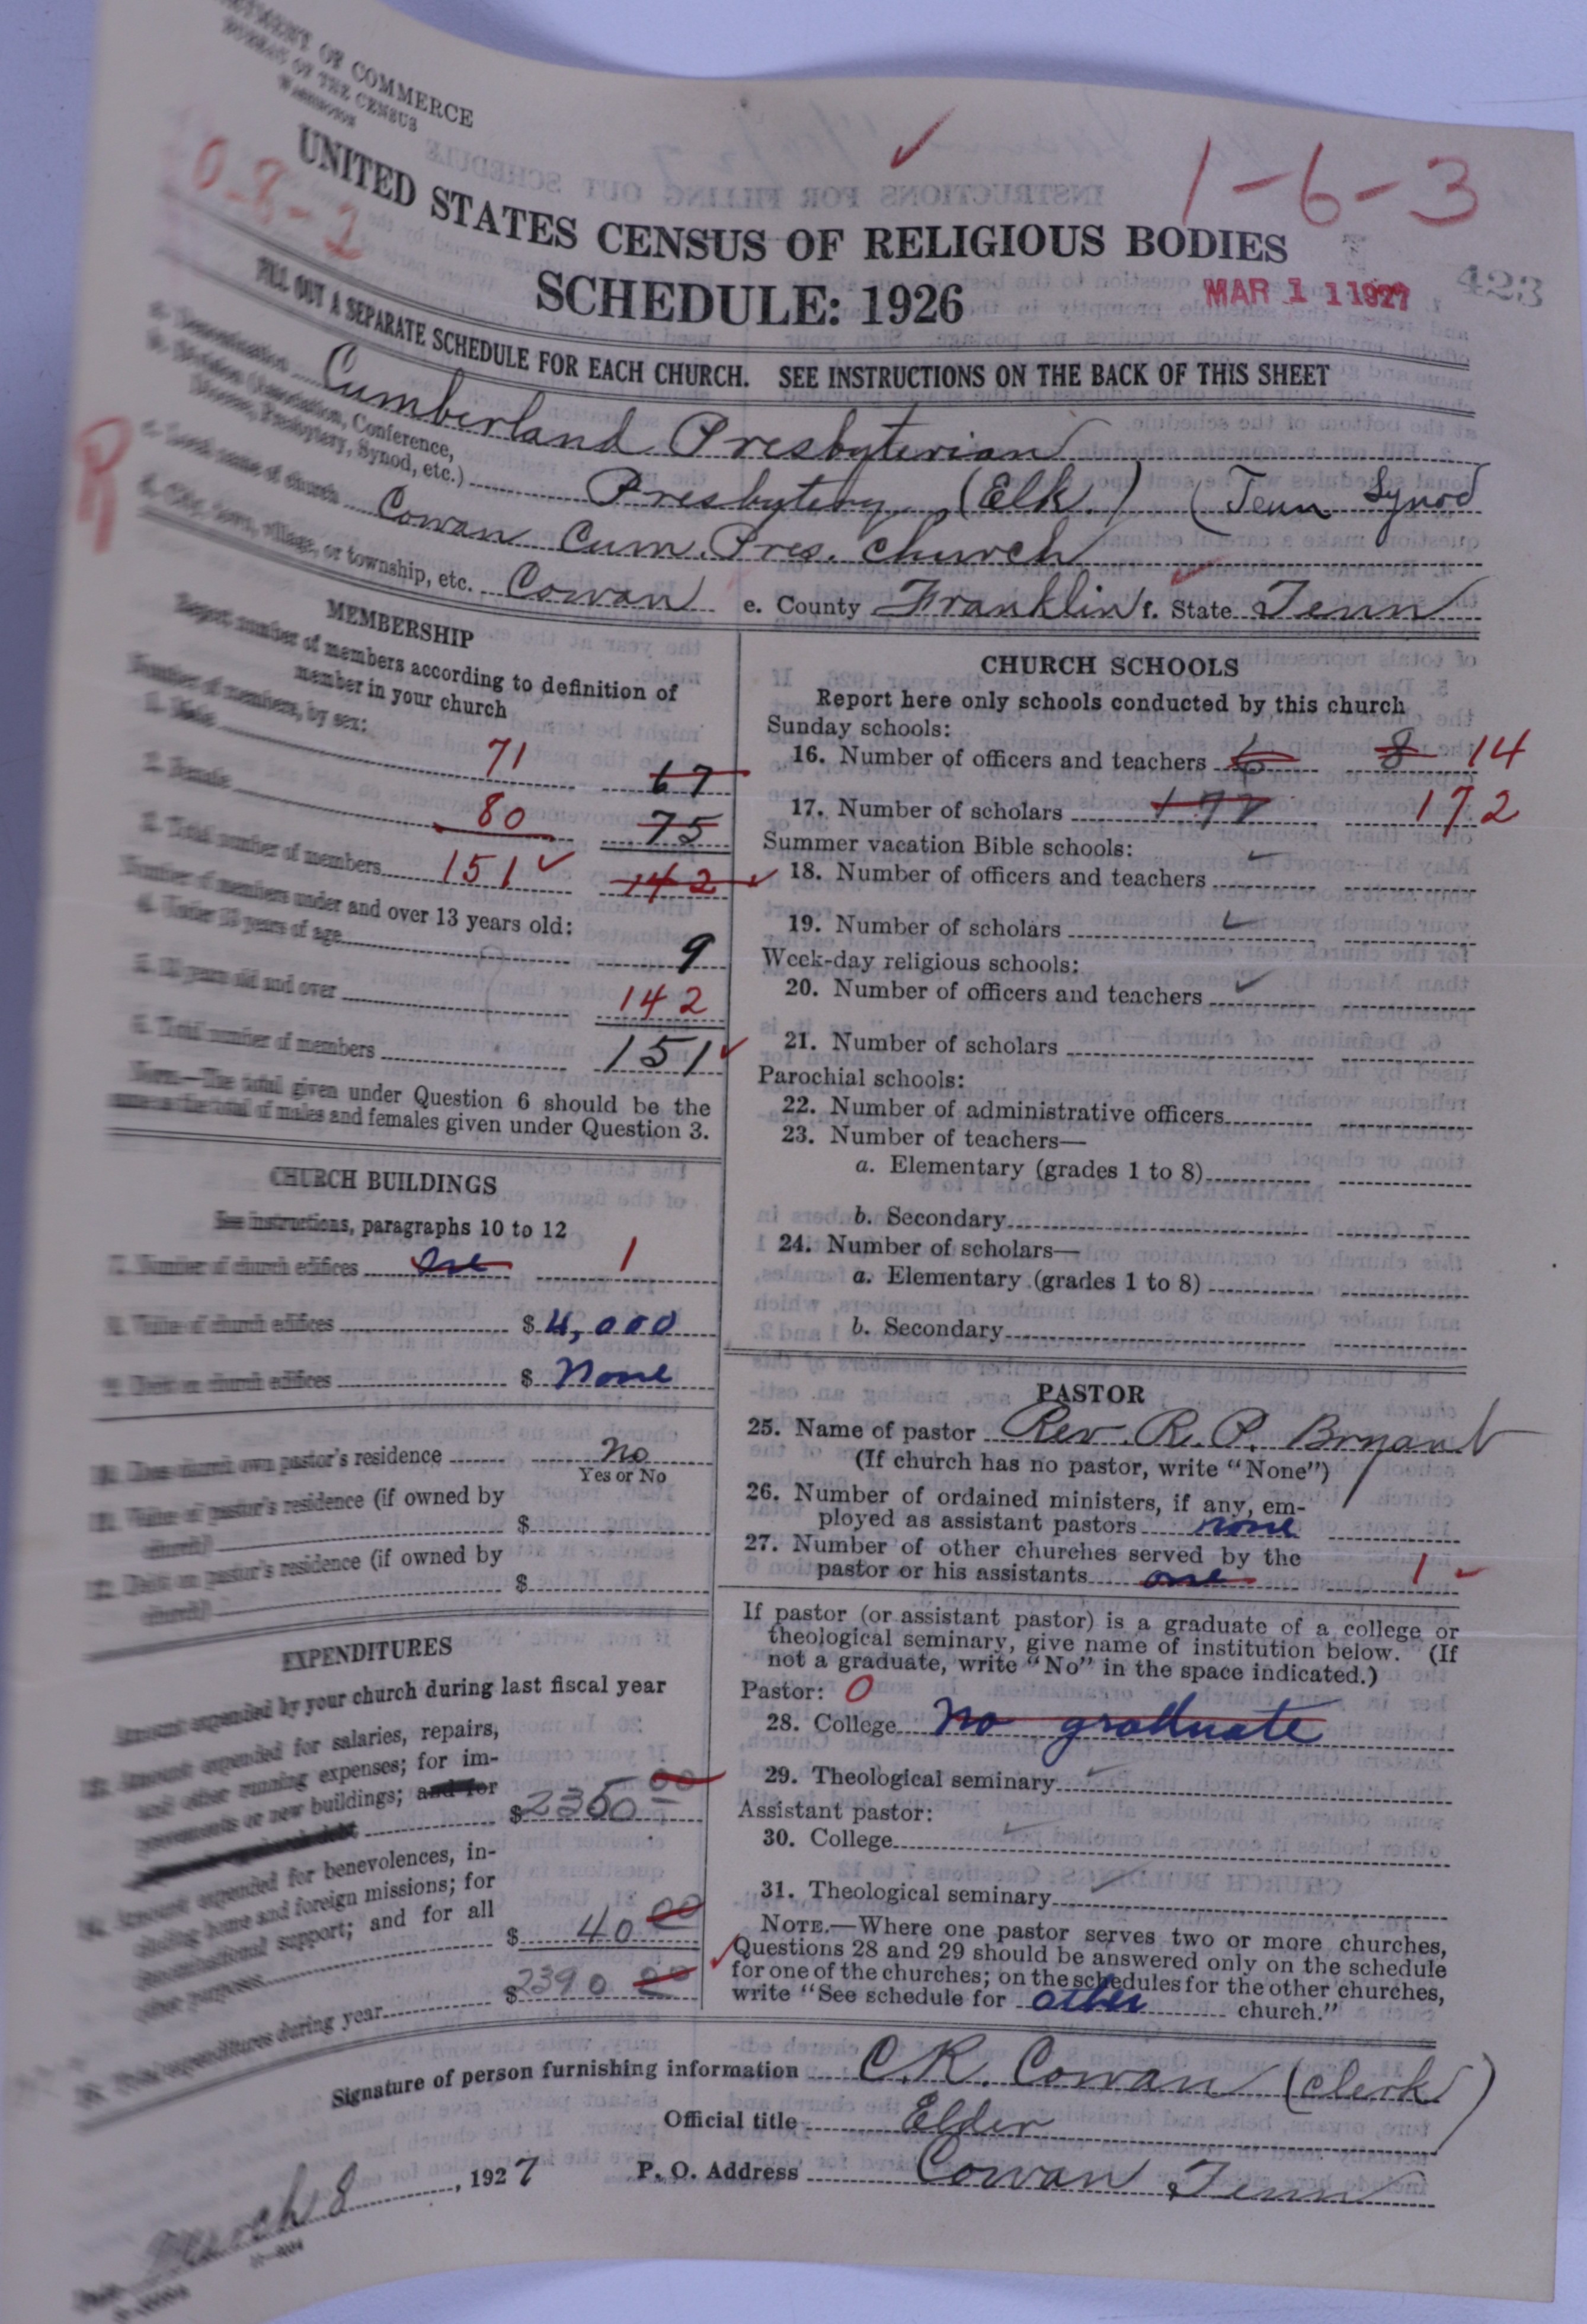 DEPARTMENT OF COMMERCE
BUREAU OF THE CENSUS
WASHINGTON
0-8-2
1-6-3
UNITED STATES CENSUS OF RELIGIOUS BODIES
SCHEDULE: 1926
MAR 11 1927
423
FILL OUT A SEPARATE SCHEDULE FOR EACH CHURCH. SEE INSTRUCTIONS ON THE BACK OF THIS SHEET
a. Denomination Cumberland Presbyterian
b. Division (Association, Conference, Diocese, Presbytery, Synod, etc.) Presbytery (Elk) (Tenn Synod
R
c. Local name of church Cowan Cum. Pres. Church
d. City, town, village, or township, etc. Cowan e. County Franklin f. State Tenn
MEMBERSHIP
Report number of members according to definition of
member in your church
Number of members, by sex:
1. Male 71 67
2. Female 80 75
3. Total number of members 151 142
Number of members under and over 13 years old:
4. Under 13 years of age 9
5. 13 years old and over 142
6. Total number of members 151
NOTE.—The total given under Question 6 should be the
same as the total of males and females given under Question 3.
CHURCH BUILDINGS
See instructions, paragraphs 10 to 12
7. Number of church edifices One 1
8. Value of church edifices $ 4,000
9. Debt on church edifices $ None
10. Does church own pastor's residence No
Yes or No
11. Value of pastor's residence (if owned by
church) $
12. Debt on pastor's residence (if owned by
church) $
EXPENDITURES
Amount expended by your church during last fiscal year
13. Amount expended for salaries, repairs,
and other running expenses; for im-
provements or new buildings; and for
$ 2350 00
14. Amount expended for benevolences, in-
cluding home and foreign missions; for
denominational support; and for all
other purposes $ 40 00
15. Total expenditures during year $ 2390 00
CHURCH SCHOOLS
Report here only schools conducted by this church
Sunday schools:
16. Number of officers and teachers 6 8 14
17. Number of scholars 172 172
Summer vacation Bible schools:
18. Number of officers and teachers
19. Number of scholars
Week-day religious schools:
20. Number of officers and teachers
21. Number of scholars
Parochial schools:
22. Number of administrative officers
23. Number of teachers—
a. Elementary (grades 1 to 8)
b. Secondary
24. Number of scholars—
a. Elementary (grades 1 to 8)
b. Secondary
PASTOR
25. Name of pastor Rev. R. P. Bryant
(If church has no pastor, write "None")
26. Number of ordained ministers, if any, em-
ployed as assistant pastors none
27. Number of other churches served by the
pastor or his assistants one 1
If pastor (or assistant pastor) is a graduate of a college or
theological seminary, give name of institution below. (If
not a graduate, write "No" in the space indicated.)
Pastor: 0
28. College No graduate
29. Theological seminary
Assistant pastor:
30. College
31. Theological seminary
NOTE.—Where one pastor serves two or more churches,
Questions 28 and 29 should be answered only on the schedule
for one of the churches; on the schedules for the other churches,
write "See schedule for other church."
Signature of person furnishing information C. K. Cowan (Clerk)
Official title Elder
Date March 8, 1927 P. O. Address Cowan Tenn